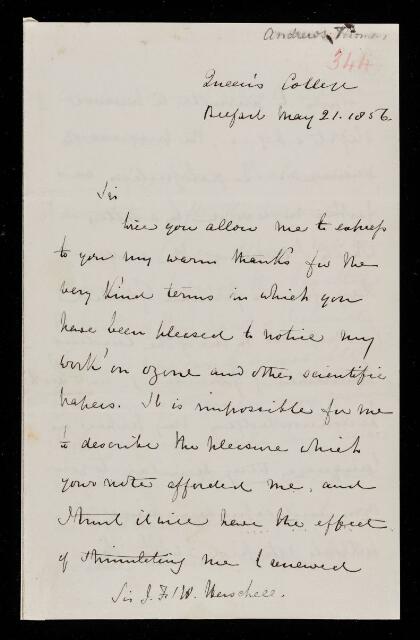 Andrews, Thomas
344
Queen's College
Belfast May 21. 1856.
Sir
Will you allow me to express
to you my warm thanks for the
very kind terms in which you
have been pleased to notice my
work on ozone and other scientific
papers. It is impossible for me
to describe the pleasure which
your note afforded me, and
I trust it will have the effect
of stimulating me to renewed
Sir J. F. W. Herschell.